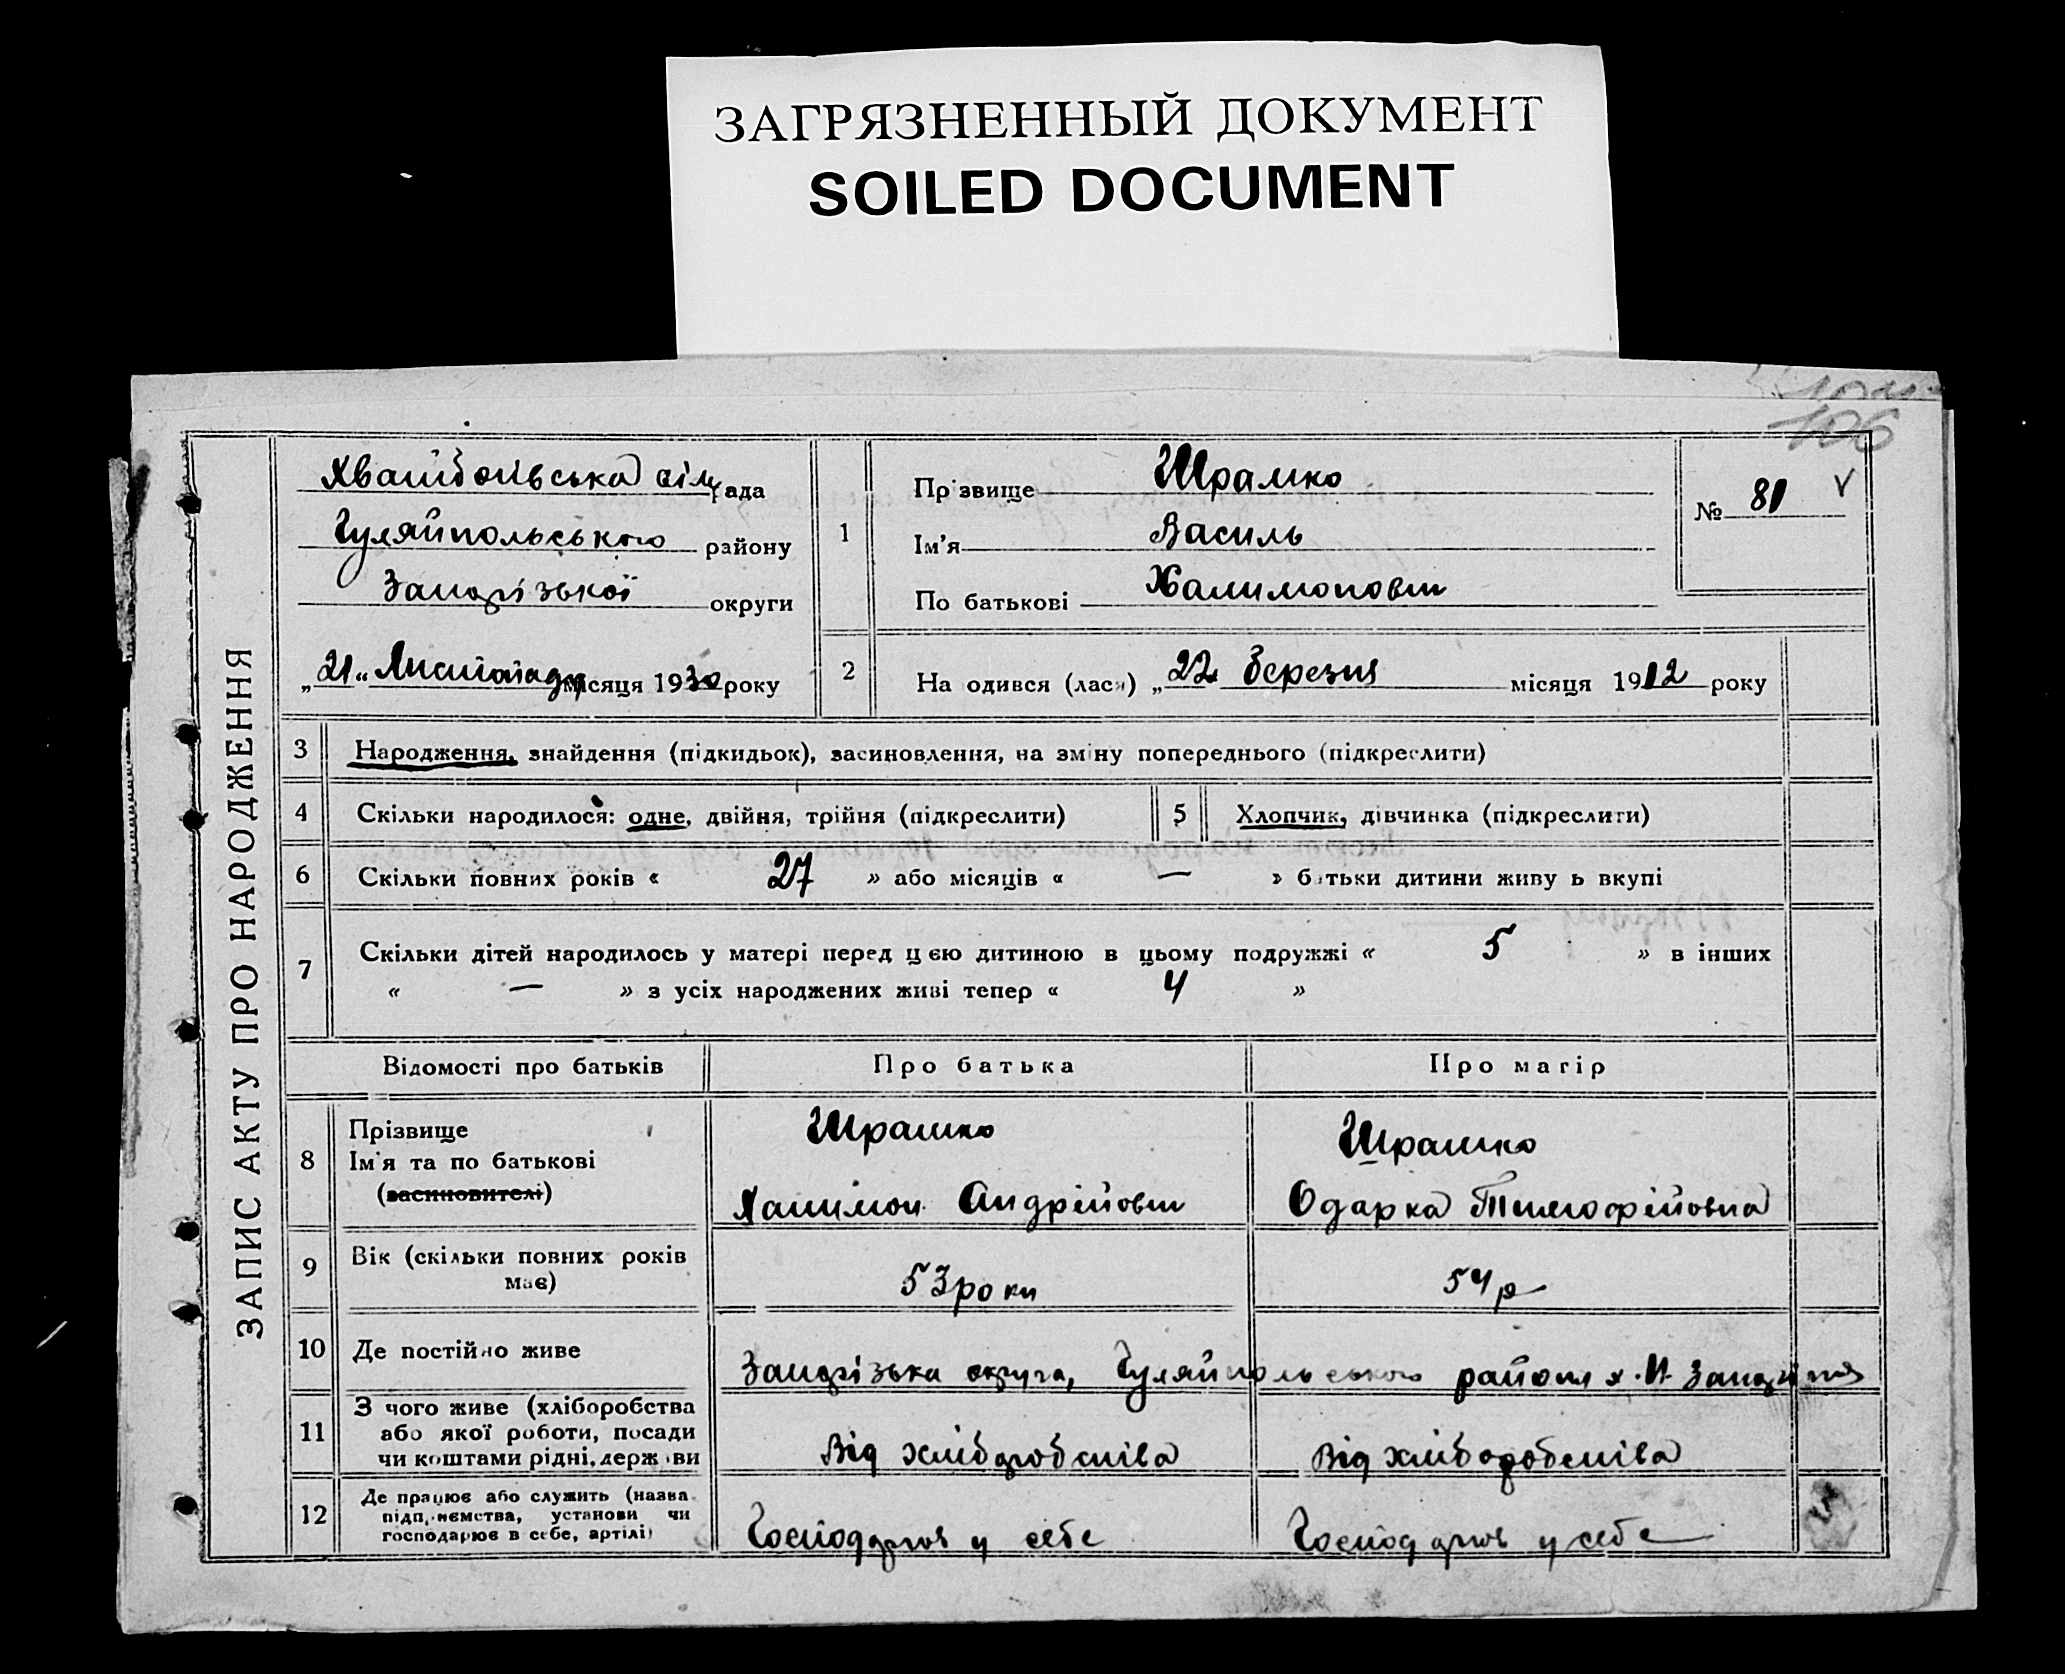 ЗАГРЯЗНЕННЫЙ ДОКУМЕНТ
SOILED DOCUMENT
106
ЗАПИС АКТУ ПРО НАРОДЖЕННЯ
сіль рада
Гуляйпольського району
Запорізької округи
„21“ Листопада місяця 1930 року
1
Прізвище Шрамко
Ім'я Василь
По батькові Халимонович
№ 81 V
2
На одився (лася) „22 Березня місяця 1912 року
3 Народження, знайдення (підкидьок), засиновлення, на зміну попереднього (підкреслити)
4 Скільки народилося: одне, двійня, трійня (підкреслити)
5 Хлопчик, дівчинка (підкреслити)
6 Скільки повних років « 27 » або місяців « — » батьки дитини живу ь вкупі
7 Скільки дітей народилось у матері перед цією дитиною в цьому подружжі « 5 » в інших
« — » з усіх народжених живі тепер « 4 »
Відомості про батьків Про батька Про матір
8 Прізвище
Ім'я та по батькові
(засиновителі)
Шрамко
Халимон Андрійович
Шрамко
Одарка Тимофійовна
9 Вік (скільки повних років має)
53 роки
54 р
10 Де постійно живе
Запорізька округа, Гуляйпольського району х. Н. Запоріжжя
11 З чого живе (хліборобства
або якої роботи, посади
чи коштами рідні, держави
Від хліборобства
Від хліборобства
12 Де працює або служить (назва
підприємства, установи чи
господарює в себе, артілі)
Господарює у себе
Господарює у себе